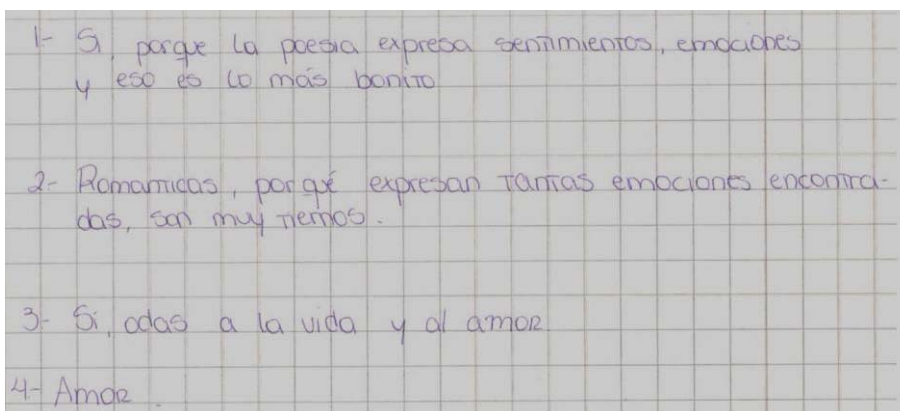 1- Si, porque la poesia expresa sentimientos, emociones
y eso es lo más bonito
2- Romanticas, por qué expresan tantas emociones encontra-
das, son muy tiernos.
3- Si, odas a la vida y al amor
4- Amor.